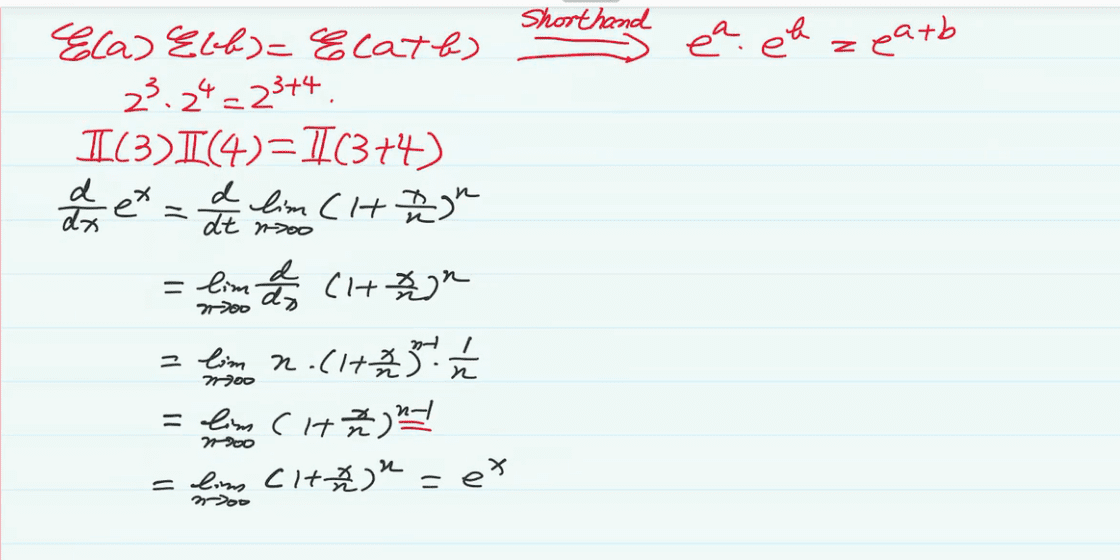 ℰ(a) ℰ(b) = ℰ(a+b) Shorthand ⟹ eᵃ · eᵇ = eᵃ⁺ᵇ
2³ · 2⁴ = 2³⁺⁴.
𝕀(3) 𝕀(4) = 𝕀(3+4)
d/dx eˣ = d/dt lim n→∞ (1 + x/n)ⁿ
= lim n→∞ d/dx (1 + x/n)ⁿ
= lim n→∞ n · (1 + x/n)ⁿ⁻¹ · 1/n
= lim n→∞ (1 + x/n)ⁿ⁻¹
= lim n→∞ (1 + x/n)ⁿ = eˣ